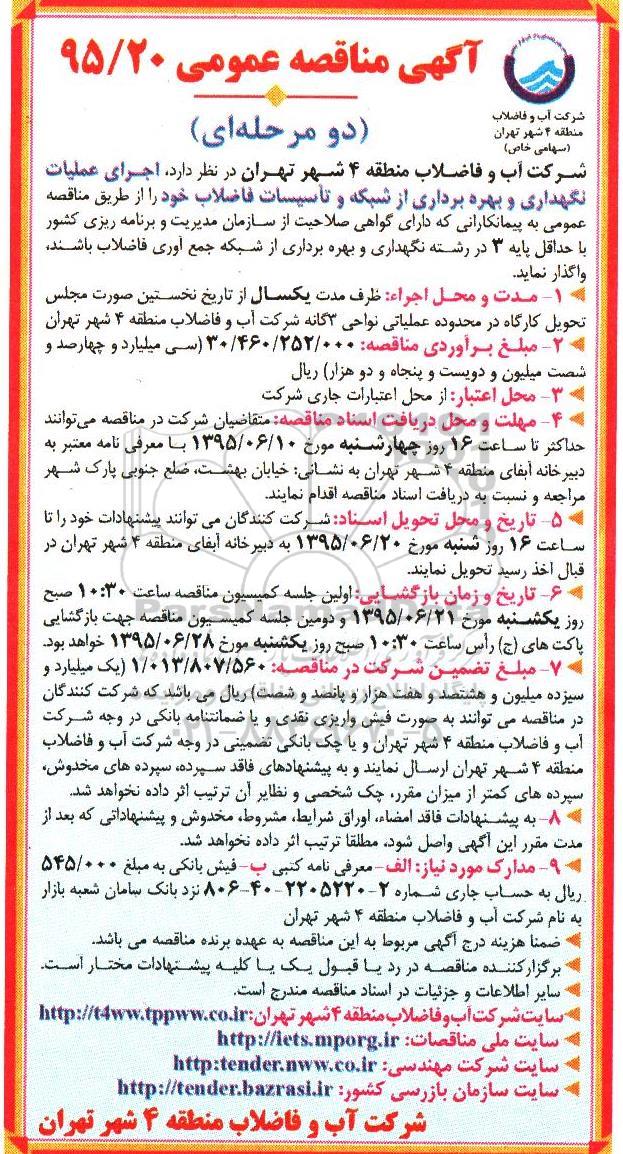 آگهی مناقصه عمومی ۹۵/۲۰
(دو مرحله‌ای)
شرکت آب و فاضلاب
منطقه ۴ شهر تهران
(سهامی خاص)
شرکت آب و فاضلاب منطقه ۴ شهر تهران در نظر دارد، اجرای عملیات
نگهداری و بهره برداری از شبکه و تأسیسات فاضلاب خود را از طریق مناقصه
عمومی به پیمانکارانی که دارای گواهی صلاحیت از سازمان مدیریت و برنامه ریزی کشور
با حداقل پایه ۳ در رشته نگهداری و بهره برداری از شبکه جمع آوری فاضلاب باشند،
واگذار نماید.
۱- مدت و محل اجراء: ظرف مدت یکسال از تاریخ نخستین صورت مجلس
تحویل کارگاه در محدوده عملیاتی نواحی ۳گانه شرکت آب و فاضلاب منطقه ۴ شهر تهران
۲- مبلغ برآوردی مناقصه: ۳۰/۴۶۰/۲۵۲/۰۰۰ (سی میلیارد و چهارصد و
شصت میلیون و دویست و پنجاه و دو هزار) ریال
۳- محل اعتبار: از محل اعتبارات جاری شرکت
۴- مهلت و محل دریافت اسناد مناقصه: متقاضیان شرکت در مناقصه می‌توانند
حداکثر تا ساعت ۱۶ روز چهارشنبه مورخ ۱۳۹۵/۰۶/۱۰ با معرفی نامه معتبر به
دبیرخانه آبفای منطقه ۴ شهر تهران به نشانی: خیابان بهشت، ضلع جنوبی پارک شهر
مراجعه و نسبت به دریافت اسناد مناقصه اقدام نمایند.
۵- تاریخ و محل تحویل اسناد: شرکت کنندگان می توانند پیشنهادات خود را تا
ساعت ۱۶ روز شنبه مورخ ۱۳۹۵/۰۶/۲۰ به دبیرخانه آبفای منطقه ۴ شهر تهران در
قبال اخذ رسید تحویل نمایند.
۶- تاریخ و زمان بازگشایی: اولین جلسه کمیسیون مناقصه ساعت ۱۰:۳۰ صبح
روز یکشنبه مورخ ۱۳۹۵/۰۶/۲۱ و دومین جلسه کمیسیون مناقصه جهت بازگشایی
پاکت های (ج) رأس ساعت ۱۰:۳۰ صبح روز یکشنبه مورخ ۱۳۹۵/۰۶/۲۸ خواهد بود.
۷- مبلغ تضمین شرکت در مناقصه: ۱/۰۱۳/۸۰۷/۵۶۰ (یک میلیارد و
سیزده میلیون و هشتصد و هفت هزار و پانصد و شصت) ریال می باشد که شرکت کنندگان
در مناقصه می توانند به صورت فیش واریزی نقدی و یا ضمانتنامه بانکی در وجه شرکت
آب و فاضلاب منطقه ۴ شهر تهران و یا چک بانکی تضمینی در وجه شرکت آب و فاضلاب
منطقه ۴ شهر تهران ارسال نمایند و به پیشنهادهای فاقد سپرده، سپرده های مخدوش،
سپرده های کمتر از میزان مقرر، چک شخصی و نظایر آن ترتیب اثر داده نخواهد شد.
۸- به پیشنهادات فاقد امضاء، اوراق شرایط، مشروط، مخدوش و پیشنهاداتی که بعد از
مدت مقرر این آگهی واصل شود، مطلقا ترتیب اثر داده نخواهد شد.
۹- مدارک مورد نیاز: الف- معرفی نامه کتبی ب- فیش بانکی به مبلغ ۵۴۵/۰۰۰
ریال به حساب جاری شماره ۲-۲۲۰۵۲۲۰-۴۰-۸۰۶ نزد بانک سامان شعبه بازار
به نام شرکت آب و فاضلاب منطقه ۴ شهر تهران
ضمنا هزینه درج آگهی مربوط به این مناقصه به عهده برنده مناقصه می باشد.
برگزارکننده مناقصه در رد یا قبول یک یا کلیه پیشنهادات مختار است.
سایر اطلاعات و جزئیات در اسناد مناقصه مندرج است.
سایت شرکت آب و فاضلاب منطقه ۴ شهر تهران: http://t4ww.tppww.co.ir
سایت ملی مناقصات: http://iets.mporg.ir
سایت شرکت مهندسی: http:tender.nww.co.ir
سایت سازمان بازرسی کشور: http://tender.bazrasi.ir
شرکت آب و فاضلاب منطقه ۴ شهر تهران